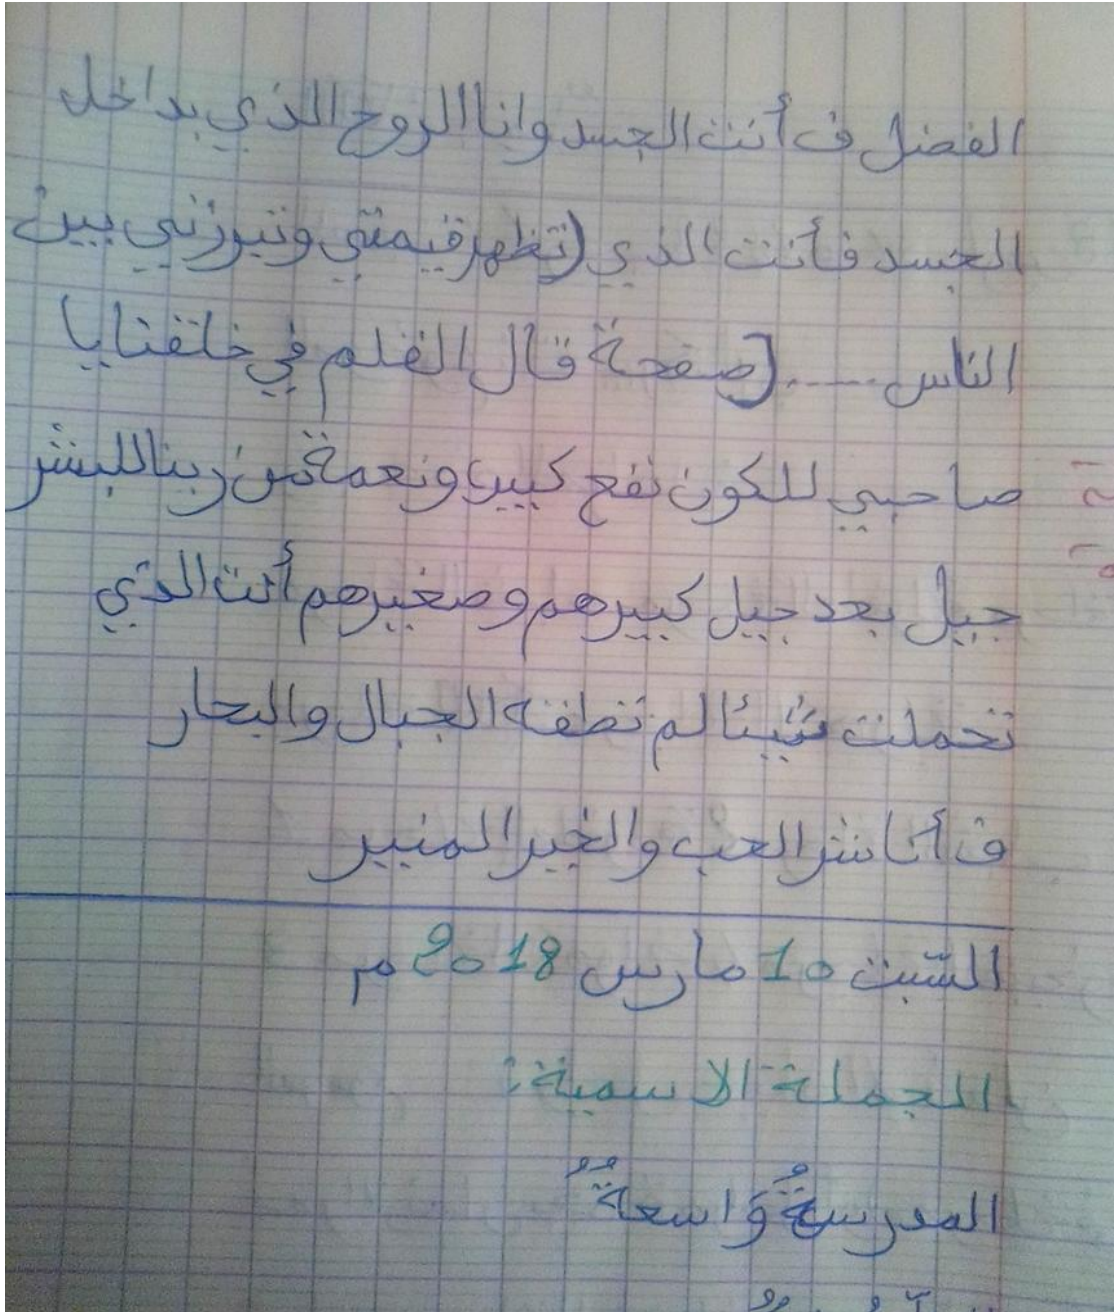 الفضل ف أنت الجسد وانا الروح الذي بداخل
الجسد فأنت الذي (تظهر قيمتي وتبرزني بين
الناس ..... (صفحة قال القلم في خلقنا يا
صاحبي للكون نفع كبير ونعمة من ربنا للبشر
جيل بعد جيل كبيرهم وصغيرهم أنت الذي
تحملت شيئا لم تطقه الجبال والبحار
ف أنا نشر الحب والخير المنير
السّبت 10 مارس 2018 م
الجملة الاسمية:
المدرسةُ وَاسعةٌ